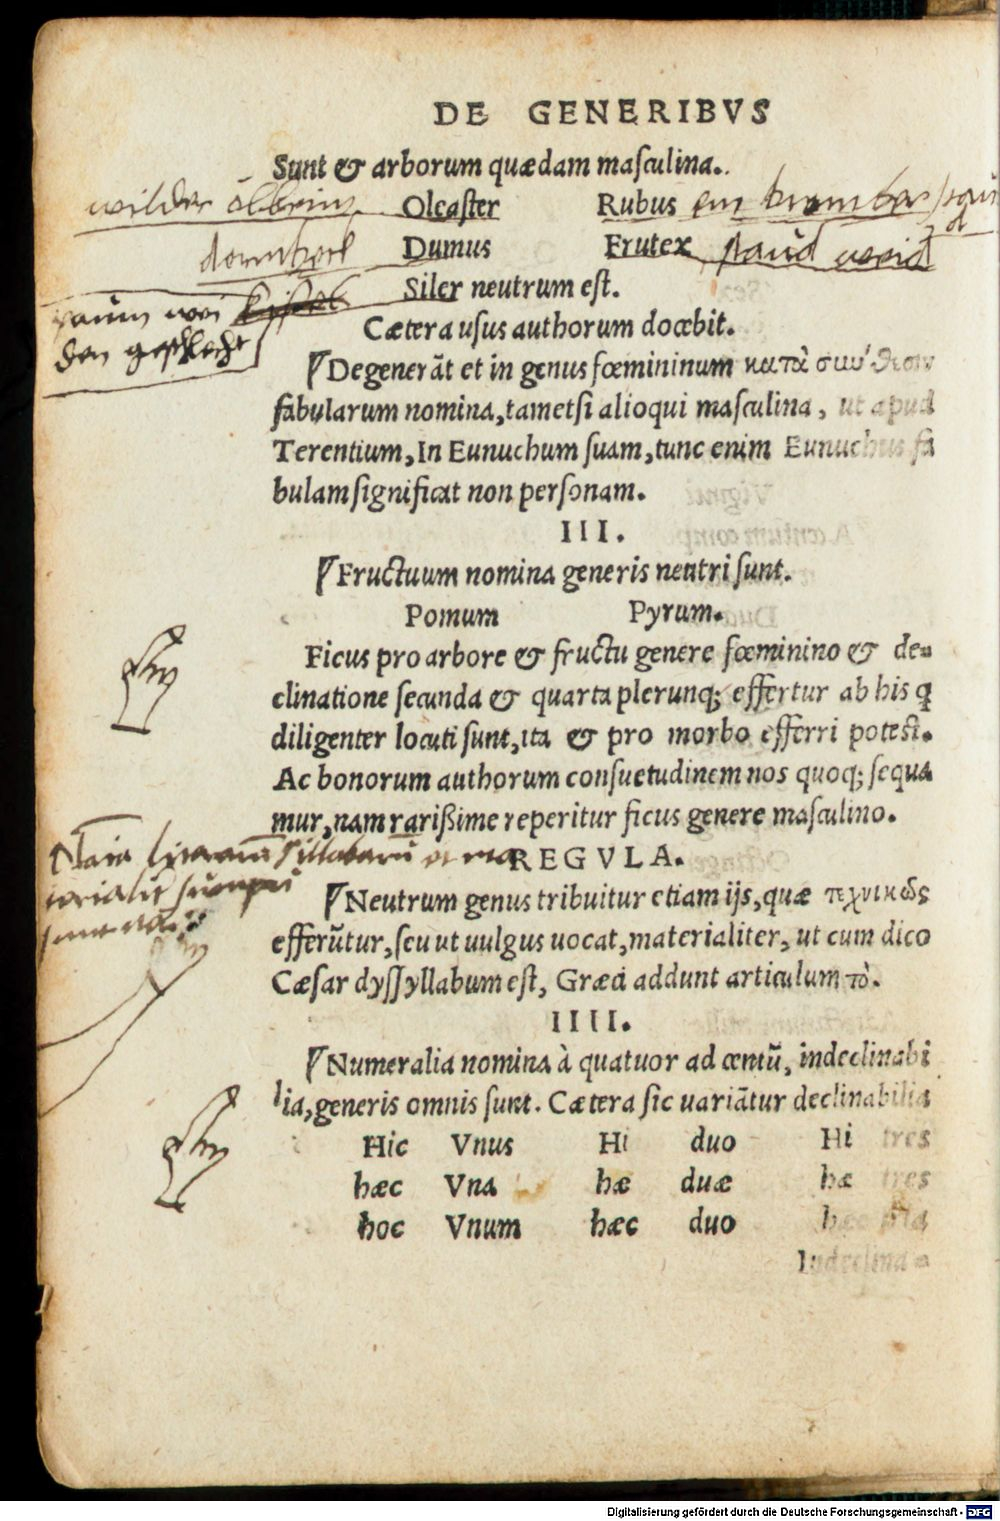 DE GENERIBVS
Sunt & arborum quædam masculina.
wilder ölbeim Oleaster Rubus ein
Dumus Frutex
Siler neutrum est.
den geschlecht
Cætera usus authorum docebit.
Degenerāt et in genus fœmininum κατὰ σύνθεσιν
fabularum nomina, tametsi alioqui masculina, ut apud
Terentium, In Eunuchum suam, tunc enim Eunuchus fa
bulam significat non personam.
III.
Fructuum nomina generis neutri sunt.
Pomum Pyrum.
Ficus pro arbore & fructu genere fœminino & de-
clinatione secunda & quarta plerunq; effertur ab his q
diligenter locuti sunt, ita & pro morbo efferri potest.
Ac bonorum authorum consuetudinem nos quoq; sequa
mur, nam rarißime reperitur ficus genere masculino.
REGVLA.
Neutrum genus tribuitur etiam ijs, quæ τεχνικῶς
efferūtur, seu ut uulgus uocat, materialiter, ut cum dico
Cæsar dyssyllabum est, Græci addunt articulum τὸ.
IIII.
Numeralia nomina à quatuor ad centū, indeclinabi
lia, generis omnis sunt. Cætera sic uariātur declinabilia
Hic Vnus Hi duo Hi tres
hæc Vna hæ duæ hæ tres
hoc Vnum hæc duo hæc tria
Indeclina-
Digitalisierung gefördert durch die Deutsche Forschungsgemeinschaft - DFG